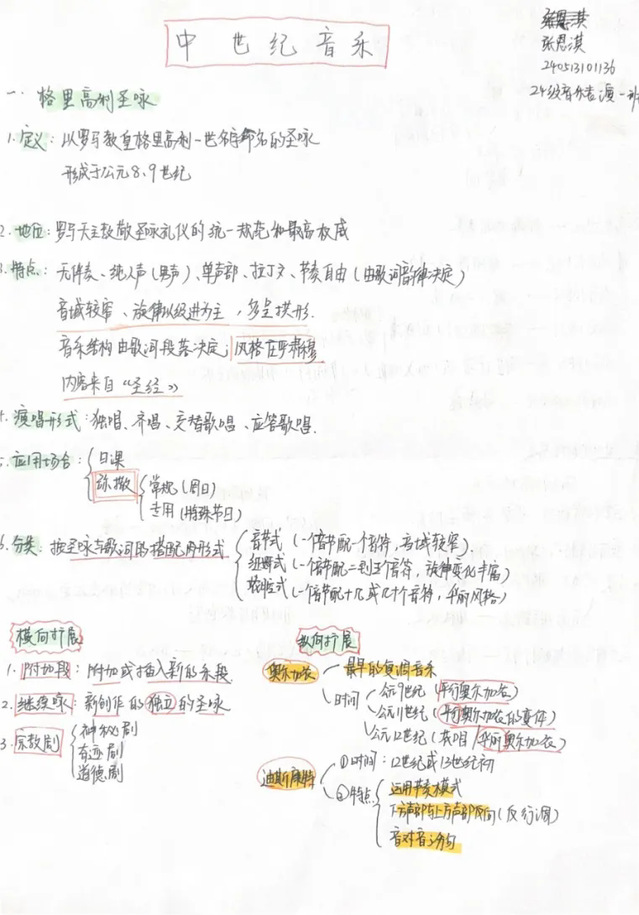 中世纪音乐
张恩淇
张恩淇
240513101136
24级音乐表演一班
一. 格里高利圣咏
1.定义：以罗马教皇格里高利一世名字命名的圣咏
形成于公元8.9世纪
2.地位：罗马天主教做圣咏礼仪的统一规范和最高权威
3.特点：无伴奏、纯人声（男声）、单声部、拉丁文、节奏自由（由歌词韵律决定）
音域较窄、旋律以级进为主，多呈拱形.
音乐结构由歌词段落决定，风格庄严肃穆
内容来自“圣经”
4.演唱形式：独唱、齐唱、交替歌唱、应答歌唱.
5.应用场合：日课
弥撒
常规（周日）
专用（特殊节日）
6.分类：按圣咏与歌词的搭配形式
音节式（一个音节配一个音符，音域较窄）
纽姆式（一个音节配二到三个音符，旋律变化丰富）
花腔式（一个音节配十几或几十个音符，华丽风格）
横向扩展
1.附加段：附加或插入新的乐段.
2.继续咏：新创作的独立的圣咏
3.宗教剧
神秘剧
奇迹剧
道德剧
纵向扩展
奥尔加农
最早的复调音乐
时间
公元9世纪（平行奥尔加农）
公元11世纪（平行奥尔加农的变体）
公元12世纪（花唱/华丽奥尔加农）
迪斯康特
①时间：12世纪或13世纪初
②特点
运用节奏模式
下方声部与上方声部反向（反行调）
音对音